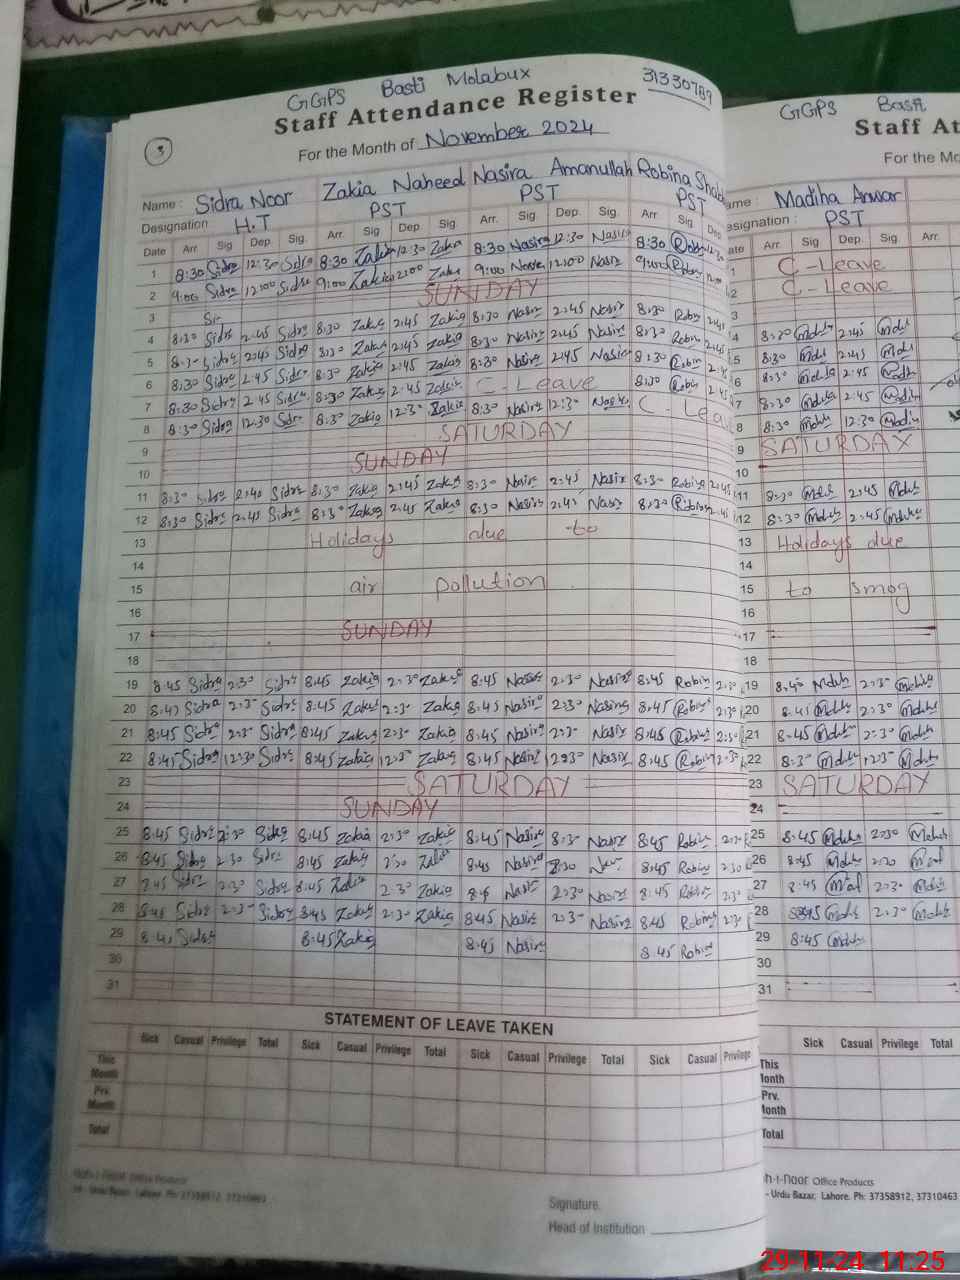 GGPS Basti Molabux 31330789
Staff Attendance Register
3
For the Month of November 2024
Name : Sidra Noor Zakia Naheed Nasira Amanullah Robina
Designation H.T PST PST PST
Date Arr. Sig. Dep. Sig. Arr. Sig. Dep. Sig. Arr. Sig. Dep. Sig. Arr. Sig. Dep.
1 8:30 Sidra 12:30 Sidra 8:30 Zakia 12:30 Zakia 8:30 Nasira 12:30 Nasira 8:30 Robin 12:30
2 9:00 Sidra 12:00 Sidra 9:00 Zakia 12:00 Zakia 9:00 Nasira 12:00 Nasira 9:00 Robin
3 SUNDAY
4 8:30 Sidra 2:45 Sidra 8:30 Zakia 2:45 Zakia 8:30 Nasir 2:45 Nasir 8:30 Robin 2:45
5 8:30 Sidra 2:45 Sidra 8:30 Zakia 2:45 Zakia 8:30 Nasir 2:45 Nasir 8:30 Robin 2:45
6 8:30 Sidra 2:45 Sidra 8:30 Zakia 2:45 Zakia 8:30 Nasira 2:45 Nasir 8:30 Robin 2:45
7 8:30 Sidra 2:45 Sidra 8:30 Zakia 2:45 Zakia C-Leave 8:30 Robin 2:45
8 8:30 Sidra 12:30 Sidra 8:30 Zakia 12:30 Zakia 8:30 Nasira 12:30 Nasir C-Lea
9 SATURDAY
10 SUNDAY
11 8:30 Sidra 2:45 Sidra 8:30 Zakia 2:45 Zakia 8:30 Nasir 2:45 Nasir 8:30 Robina 2:45
12 8:30 Sidra 2:45 Sidra 8:30 Zakia 2:45 Zakia 8:30 Nasira 2:45 Nasir 8:30 Robina 2:45
13 Holidays due to
14
15 air pollution
16
17 SUNDAY
18
19 8:45 Sidra 2:30 Sidra 8:45 Zakia 2:30 Zakia 8:45 Nasira 2:30 Nasira 8:45 Robin 2:30
20 8:45 Sidra 2:30 Sidra 8:45 Zakia 2:30 Zakia 8:45 Nasir 2:30 Nasira 8:45 Robin 2:30
21 8:45 Sidra 2:30 Sidra 8:45 Zakia 2:30 Zakia 8:45 Nasir 2:30 Nasir 8:45 Robin 2:30
22 8:45 Sidra 12:30 Sidra 8:45 Zakia 12:30 Zakia 8:45 Nasir 12:30 Nasir 8:45 Robin 2:30
23 SATURDAY
24 SUNDAY
25 8:45 Sidra 2:30 Sidra 8:45 Zakia 2:30 Zakia 8:45 Nasira 8:30 Nasir 8:45 Robin 2:30
26 8:45 Sidra 2:30 Sidra 8:45 Zakia 2:30 Zakia 8:45 Nasira 2:30 8:45 Robin 2:30
27 Sidra 2:30 Sidra 8:45 Zakia 2:30 Zakia Nasir 2:30 Nasir 8:45 Robin 2:30
28 8:45 Sidra 2:30 Sidra 8:45 Zakia 2:30 Zakia 8:45 Nasir 2:30 Nasira 8:45 Robin 2:30
29 8:45 Sidra 8:45 Zakia 8:45 Nasira 8:45 Robin
30
31
STATEMENT OF LEAVE TAKEN
Sick Casual Privilege Total Sick Casual Privilege Total Sick Casual Privilege Total Sick Casual Privilege
This Month
Prv. Month
Total
Office Products
Urdu Bazar, Lahore. Ph: 37358912, 37310463
Signature.
Head of Institution
GGPS Basti
Staff At
For the Mo
ame : Madiha Anwar
esignation : PST
ate Arr. Sig. Dep. Sig. Arr.
1 C-Leave
2 C-Leave
3
4 8:30 Madiha 2:45 Madih
5 8:30 Madi 2:45 Madi
6 8:30 Madiha 2:45 Madih
7 8:30 Madih 2:45 Madih
8 8:30 Madih 12:30 Madih
9 SATURDAY
10
11 8:30 Madih 2:45 Madih
12 8:30 Madih 2:45 Madih
13 Holidays due
14
15 to smog
16
17
18
19 8:45 Madih 2:30 Madiha
20 8:45 Madih 2:30 Madih
21 8:45 Madih 2:30 Madih
22 8:30 Madih 12:30 Madih
23 SATURDAY
24
25 8:45 Madiha 2:30 Madih
26 8:45 Madih 2:30
27 8:45 2:30 Madih
28 8:45 Madih 2:30 Madih
29 8:45 Madih
30
31
Sick Casual Privilege Total
This Month
Prv. Month
Total
h-i-noor Office Products
- Urdu Bazar, Lahore. Ph: 37358912, 37310463
29-11-24 11:25